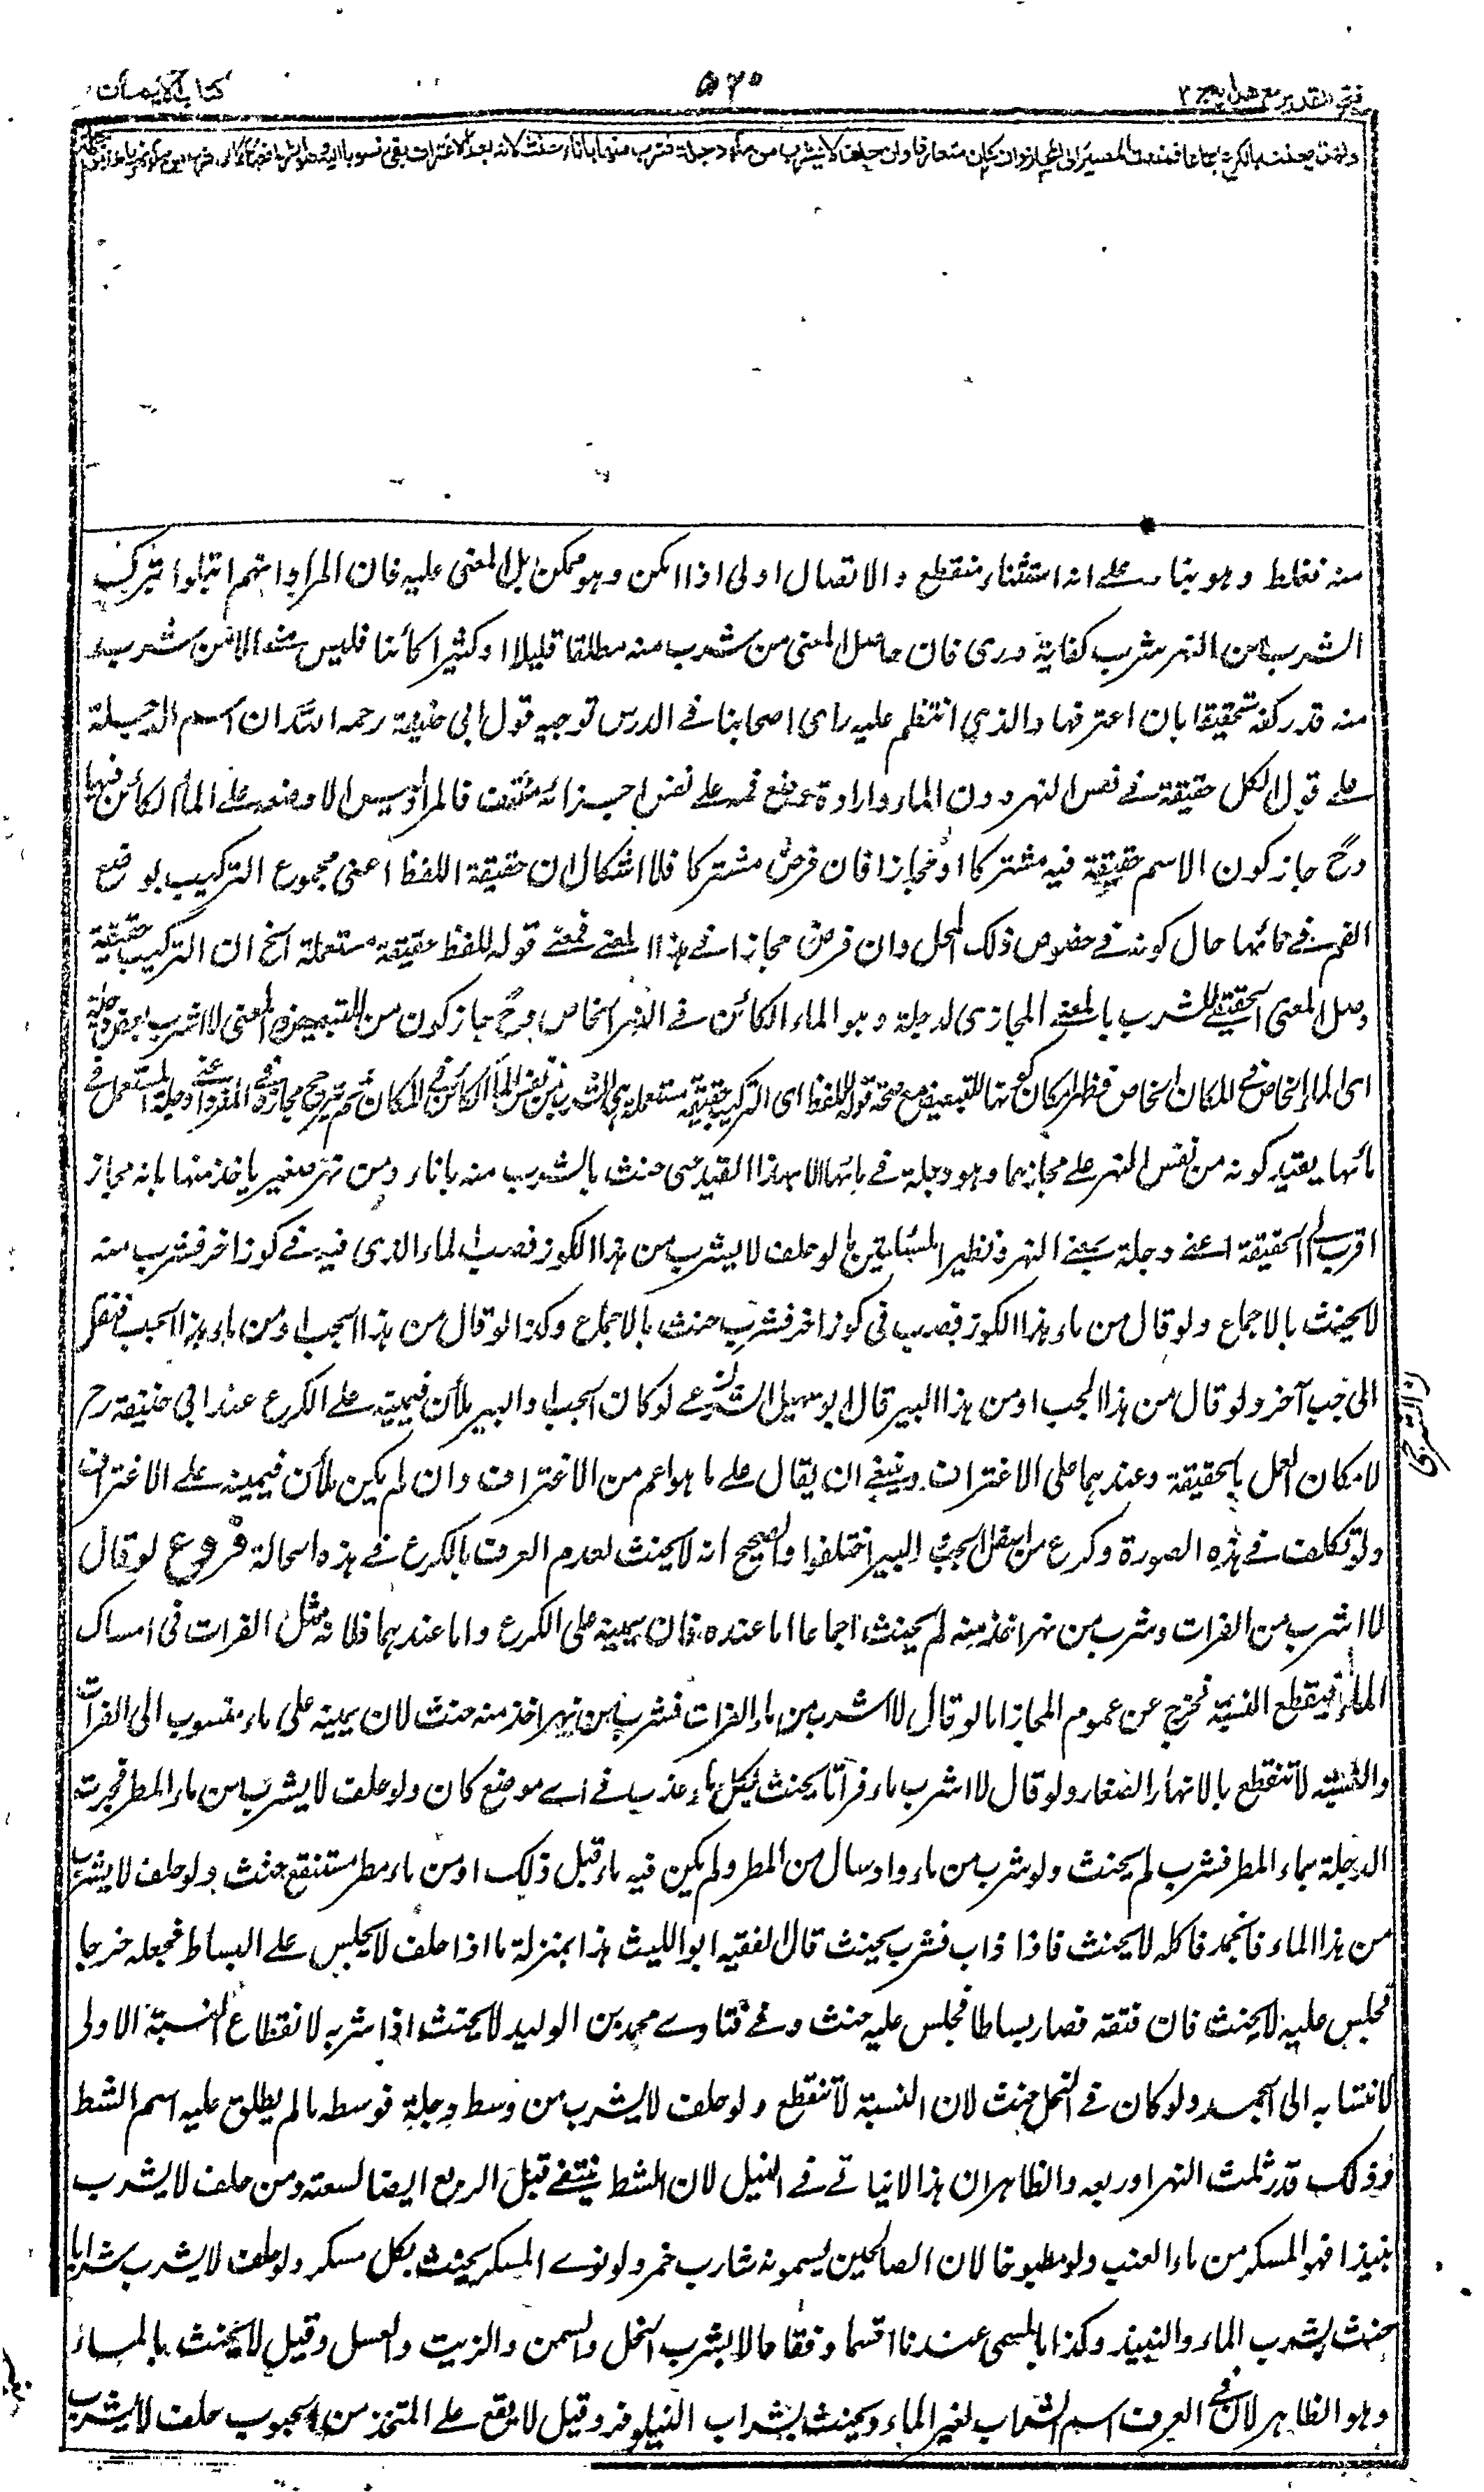 فتح القدير مع هدايه ج ٢
٥٢٠
كتاب الايمان
ولهذا يحنث بالكرع اجماعا فمنعت المصير الى المجاز وان كان متعارفا وان حلف لا يشرب من ماء دجلة فشرب منها باناء حنث لانه بعد الاغتراف بقي منسوبا اليه وهو الشرط فصار كما اذا شرب من ماء نهر ياخذ من دجلة
منه فغلط وهو بناء على انه استثناء منقطع والاتصال اولى اذا امكن وهو ممكن بل المعنى عليه فان المراد انهم ابتلوا بترك
الشرب من النهر شرب كفاية وري فان حاصل المعنى من شرب منه مطلقا قليلا او كثيرا كائنا فليس منه الا من شرب
منه قدر كفه تحقيقا بان اغترفها والذي انتظم عليه راى اصحابنا في الدرس توجيه قول ابي حنيفة رحمه الله ان اسم الدجلة
على قول الكل حقيقة في نفس النهر دون الماء وارادة وضع فمه على نفس اجزائه منتف فالمراد ليس الا وضعه على الماء الكائن فيها
وح جاز كون الاسم حقيقة فيه مشتركا او مجازا فان فرض مشتركا فلا اشكال ان حقيقة اللفظ اعنى مجموع التركيب بوضع
الفم في مائها حال كونه في خصوص ذلك المحل وان فرض مجازا في هذا المعنى فمعنى قوله للفظ حقيقة مستعملة الخ ان التركيب حقيقة
وصل المعنى الحقيقي للشرب بالمعنى المجازي لدجلة وهو الماء الكائن في النهر الخاص وح جاز كون من للتبعيض والمعنى لا اشرب بعض دجلة
اى الماء الخاص في المكان الخاص فظهر امكان كونها للتبعيض مع صحة قوله للفظ اى التركيب حقيقة مستعملة هي الشرب من نفس الماء الكائن في المكان ثم ترجح مجازه في المفرد اعنى دجلة المستعمل في
مائها يقيد كونه من نفس النهر على مجازهما وهو دجلة في مائها لا بهذا القيد حتى حنث بالشرب منه باناء ومن نهر صغير ياخذ منها بانه مجاز
اقرب الى الحقيقة اعنى دجلة بمعنى النهر ونظير المسئلتين ما لو حلف لا يشرب من هذا الكوز فصب الماء الذي فيه في كوز اخر فشرب منه
لا يحنث بالاجماع ولو قال من ماء هذا الكوز فصب في كوز اخر فشرب حنث بالاجماع وكذا لو قال من هذا الحب او من ماء هذا الحب فنقل
الى حب آخر ولو قال من هذا الحب او من هذا البير قال ابو سهيل الشرعى لو كان الحب او البير ملآن فيمينه على الكرع عند ابي حنيفة رح
لامكان العمل بالحقيقة وعندهما على الاغتراف وينبغي ان يقال على ما هو اعم من الاغتراف وان لم يكن ملآن فيمينه على الاغتراف
ولو تكلف في هذه الصورة وكرع من اسفل الحب او البير اختلفوا والصحيح انه لا يحنث لعدم العرف بالكرع في هذه الحالة فروع لو قال
لا اشرب من الفرات وشرب من نهر اخذ منه لم يحنث اجماعا اما عنده فان يمينه على الكرع واما عندهما فلانه مثل الفرات في امساك
الماء فينقطع النسبة فخرج عن عموم المجاز اما لو قال لا اشرب من ماء الفرات فشرب من نهر اخذ منه حنث لان يمينه على ماء منسوب الى الفرات
والنسبة لا تنقطع بالانهار الصغار ولو قال لا اشرب ماء فراتا يحنث بكل ماء عذب في اي موضع كان ولو حلف لا يشرب من ماء المطر فجرت
الدجلة بماء المطر فشرب لم يحنث ولو شرب من ماء واد سال من المطر ولم يكن فيه ماء قبل ذلك او من ماء مطر مستنقع حنث ولو حلف لا يشرب
من هذا الماء فانجمد فاكله لا يحنث فاذا ذاب فشرب يحنث قال الفقيه ابو الليث هذا بمنزلة ما اذا حلف لا يجلس على البساط فجعله خرجا
فجلس عليه لا يحنث فان فتقه فصار بساطا فجلس عليه حنث وفي فتاوى محمد بن الوليد لا يحنث اذا شربه لانقطاع النسبة الاولى
لانتسابه الى الجمد ولو كان في النخل حنث لان النسبة لا تنقطع ولو حلف لا يشرب من وسط دجلة فوسطه ما لم يطلق عليه اسم الشط
وذلك قدر ثلث النهر او ربعه والظاهر ان هذا لا يتاتى في النيل لان الشط ينتفي قبل الربع ايضا لسعته ومن حلف لا يشرب
نبيذا فهو المسكر من ماء العنب ولو مطبوخا لان الصالحين يسمونه شارب خمر ولو نوى المسكر يحنث بكل مسكر ولو حلف لا يشرب شرابا
حنث بشرب الماء والنبيذ وكذا بالمسمى عندنا اقسما وفقاعا لا بشرب الخل والسمن والزيت والعسل وقيل لا يحنث بالماء
وهو الظاهر لان في العرف اسم الشراب لغير الماء ويحنث بشراب النيلوفر وقيل لا يقع على المتخذ من الحبوب حلف لا يشرب